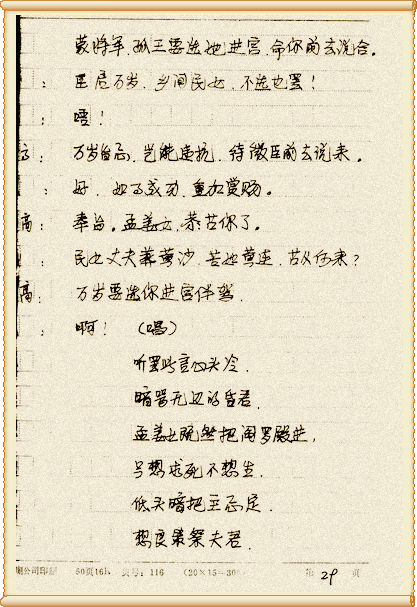 蒙将军,孤王要选她进宫,命你前去说合。
: 臣启万岁,乡间民女,不选也罢!
: 唔!
: 万岁旨意,岂能违抗,待微臣前去说来。
: 好,如若成功,重加赏赐。
高: 奉旨。孟姜女,恭喜你了。
: 民女丈夫葬黄沙,苦如黄连,喜从何来?
高: 万岁要选你进宫伴驾。
: 啊! (唱)
听罢此言心头冷,
暗骂无道的昏君,
孟姜女既然把阎罗殿进,
只想求死不想生,
低头暗把主意定,
想良策祭夫君。
刷公司印制 50页16 页号:116 (20×15=300 第 29 页